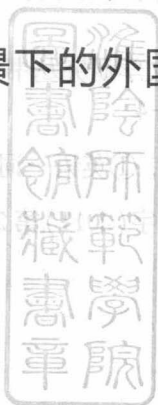 景下的外国
淮陰師範學院
圖書館藏書章